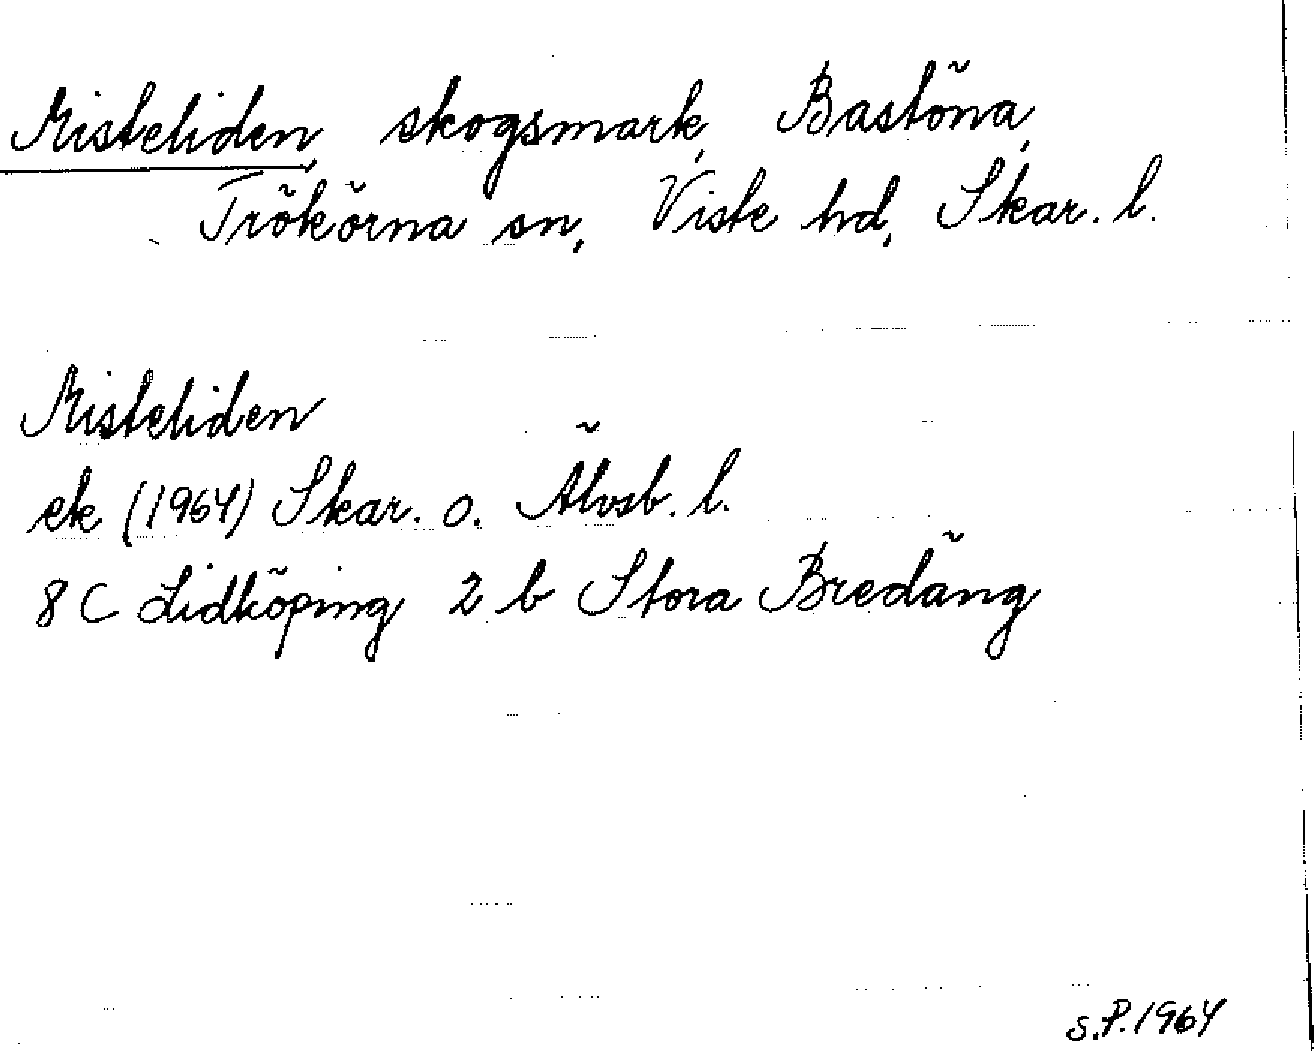 Misteliden, skogsmark, Bastöna,
Trökörna sn, Viste hd, Skar. l.
Misteliden
ek (1964) Skar. o. Älvsb. l.
8 C Lidköping 2 b Stora Bredäng
S.P. 1964